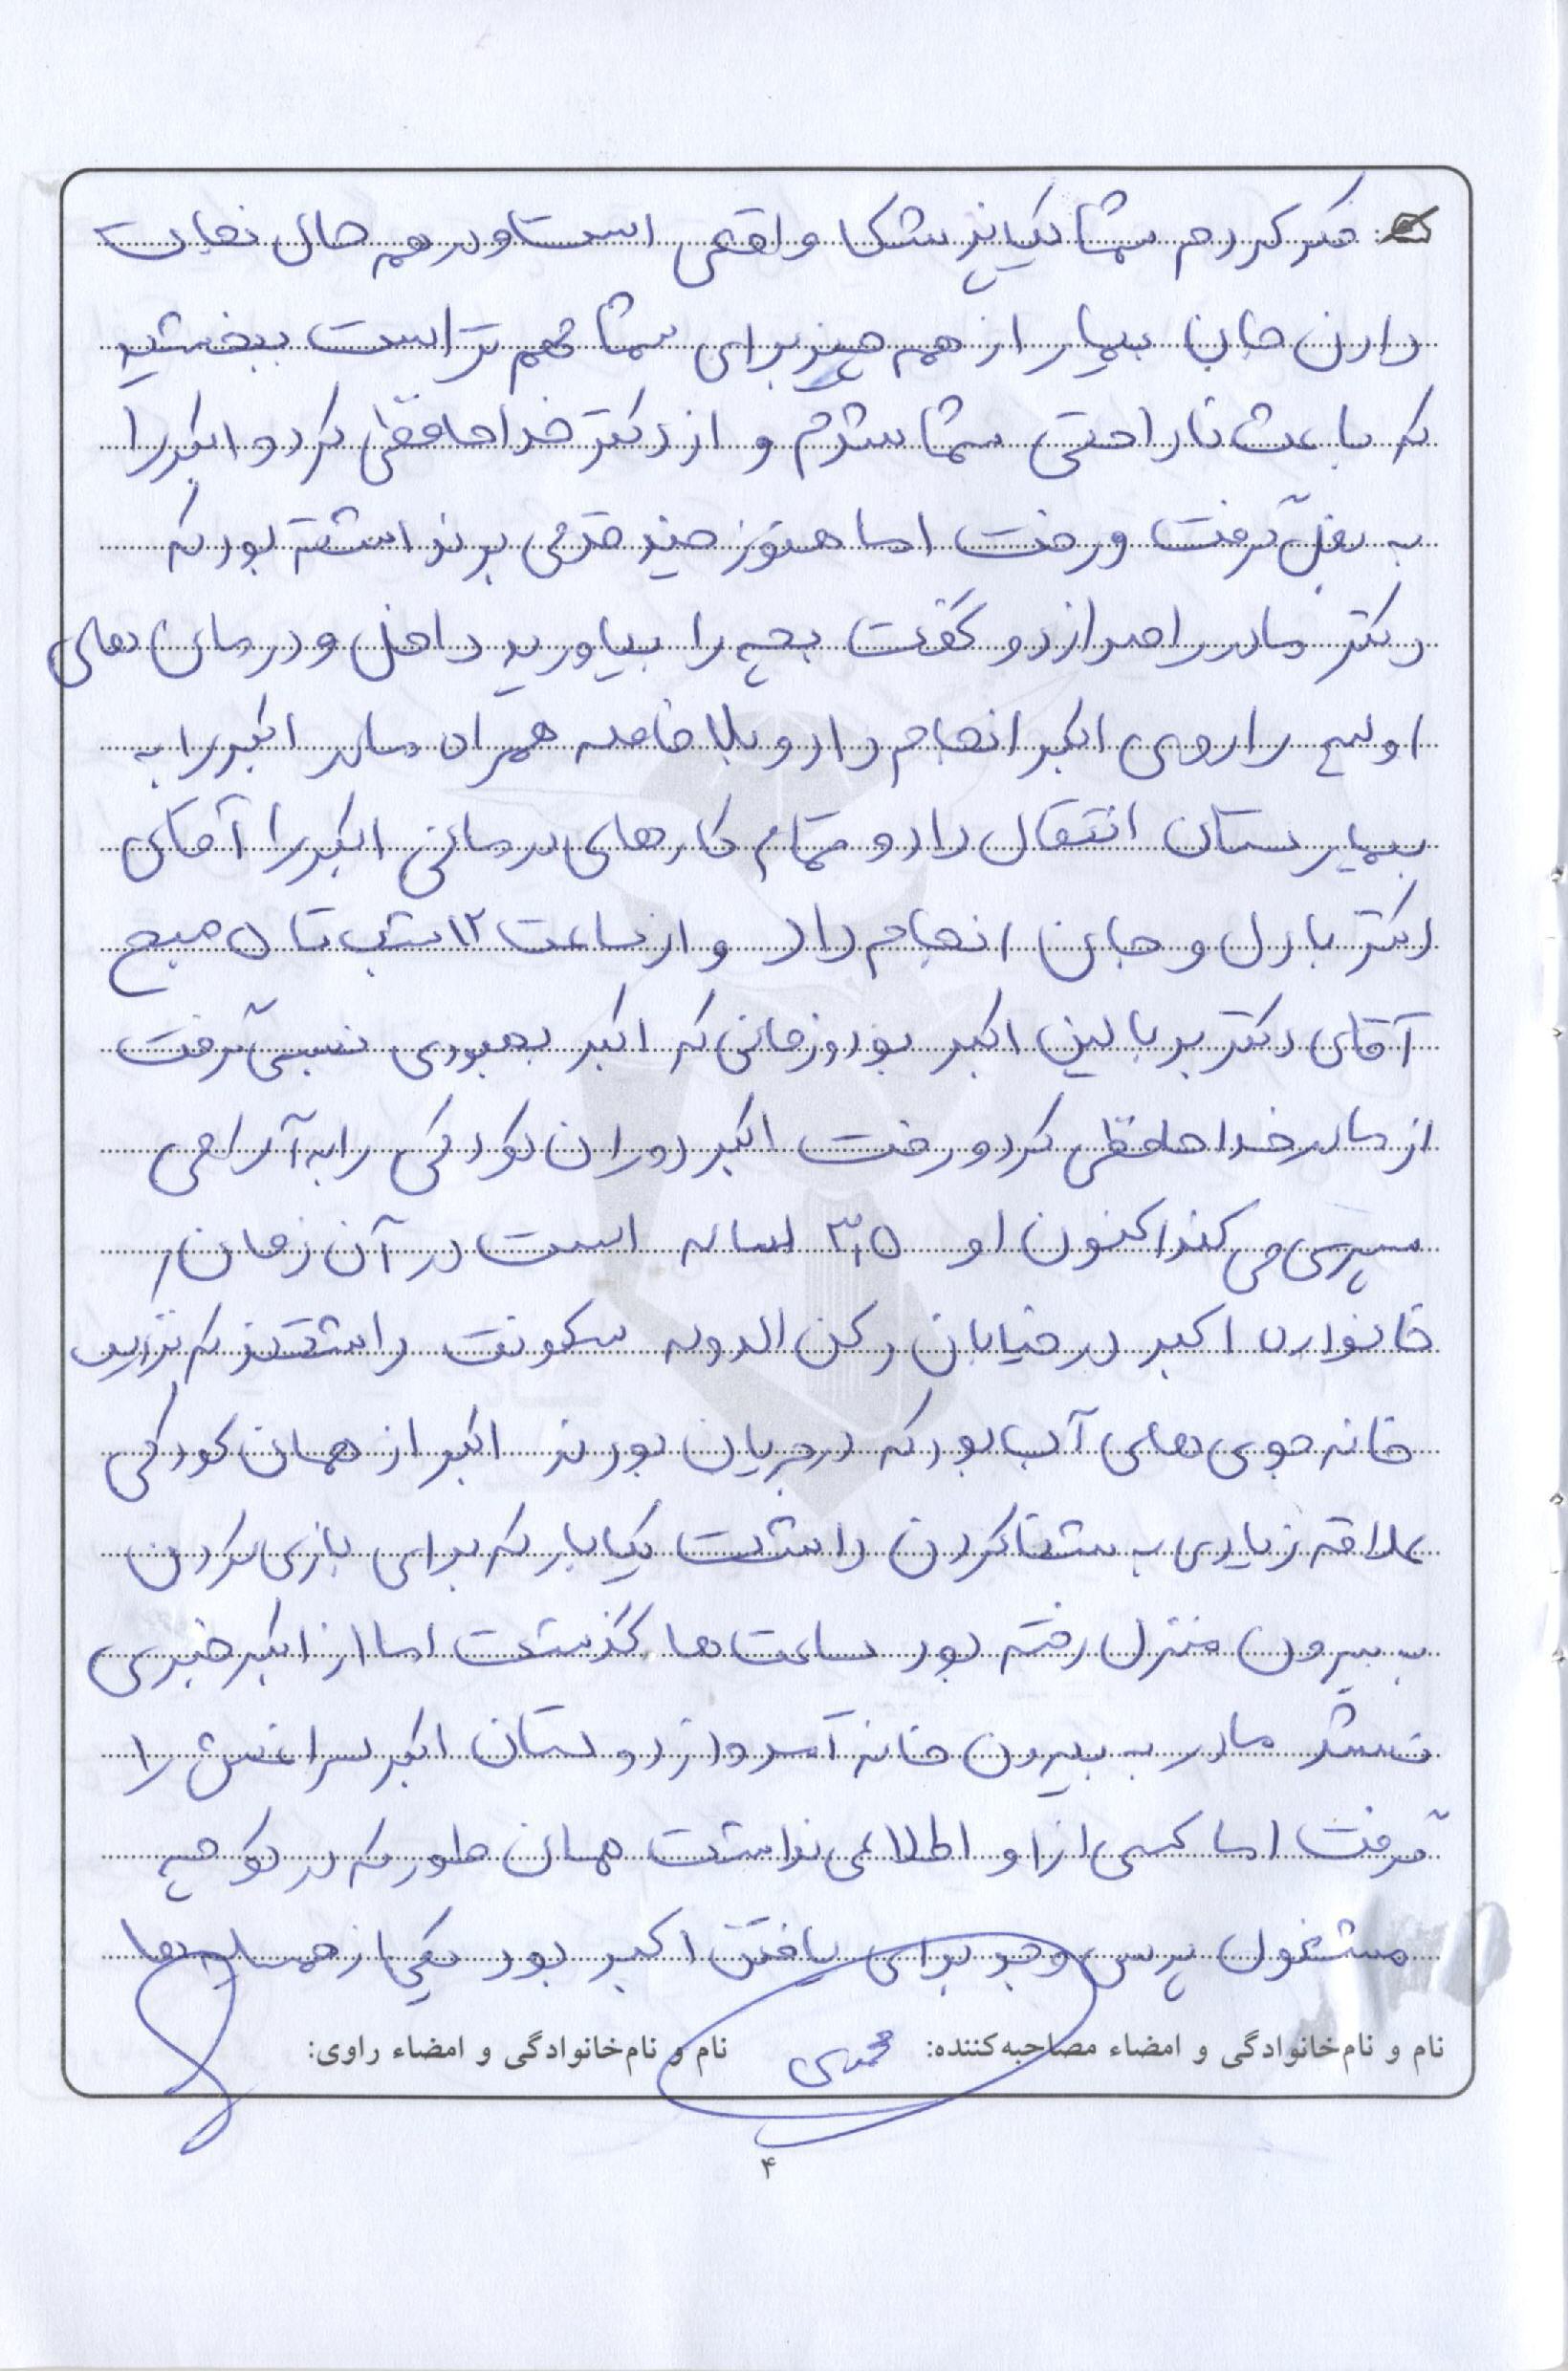 فکر کردم شما یک پزشک واقعی است و در همه حال نجات
دادن جان بیمار از همه چیز برای شما مهم تر است ببخشید
که باعث ناراحتی شما شدم و از دکتر خداحافظی کرد و اکبر را
به بغل گرفت و رفت اما هنوز چند قدمی برنداشته بود که
دکتر مادر را صدا زد و گفت بچه را بیاورید داخل و درمان های
اولیه را روی اکبر انجام داد و بلافاصله همراه مادر اکبر را به
بیمارستان انتقال داد و تمام کارهای درمانی اکبر را آقای
دکتر با دل و جان انجام داد و از ساعت ۱۲ شب تا ۵ صبح
آقای دکتر بر بالین اکبر بود و زمانی که اکبر بهبودی نسبی گرفت
از مادر خداحافظی کرد و رفت اکبر دوران کودکی را به آرامی
سپری می کند اکنون او ۳/۵ ساله است در آن زمان
خانواده اکبر در خیابان رکن الدوله سکونت داشتند که نزدیک
خانه جوی های آب بود که در جریان بودند اکبر از همان کودکی
علاقه زیادی به شنا کردن داشت یکبار که برای بازی کردن
به بیرون منزل رفته بود ساعت ها گذشت اما از اکبر خبری
نشد مادر به بیرون خانه آمد و از دوستان اکبر سراغش را
گرفت اما کسی از او اطلاعی نداشت همان طور که در کوچه
مشغول پرس و جو برای یافتن اکبر بود یکی از همسایه ها
نام و نام‌خانوادگی و امضاء مصاحبه‌کننده: محمدی نام و نام‌خانوادگی و امضاء راوی:
۴